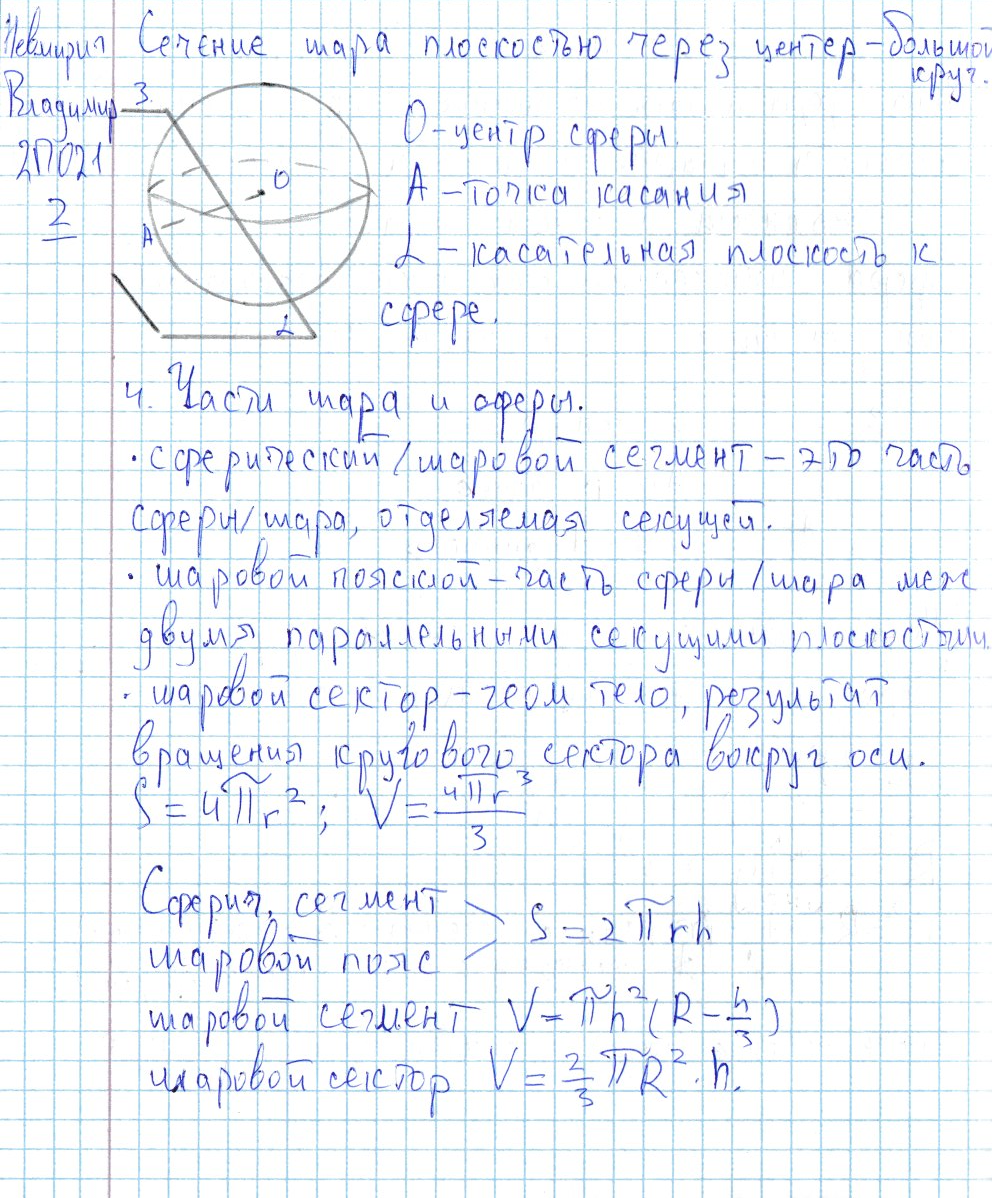 Сечение шара плоскостью через центер – большой
круг.
Владимир
2П021
2
3.
О
А
L
О – центр сферы.
А – точка касания
L – касательная плоскость к
сфере.
4. Части шара и сферы.
· сферический/шаровой сегмент – это часть
сферы/шара, отделяемая секущей.
· шаровой пояс/слой – часть сферы/шара меж
двумя параллельными секущими плоскостями.
· шаровой сектор – геом тело, результат
вращения кругового сектора вокруг оси.
S = 4πr²; V = 4πr³/3
Сферич. сегмент
шаровой пояс
> S = 2πrh
шаровой сегмент V = πh²(R – h/3)
шаровой сектор V = 2/3 πR² · h.